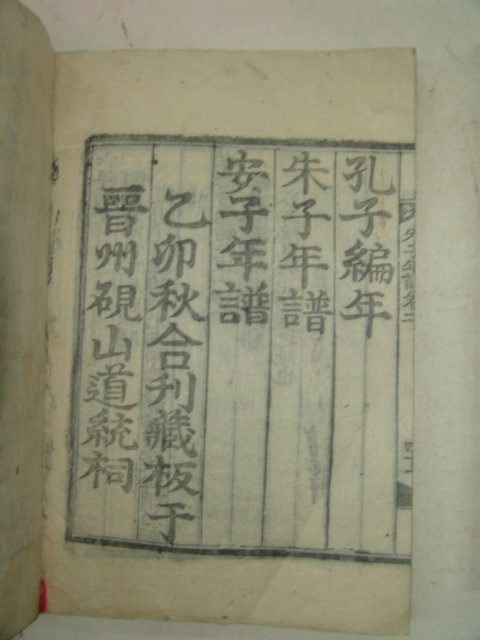 孔子編年
朱子年譜
安子年譜
乙卯秋合刊藏板于
晉州硯山道統祠